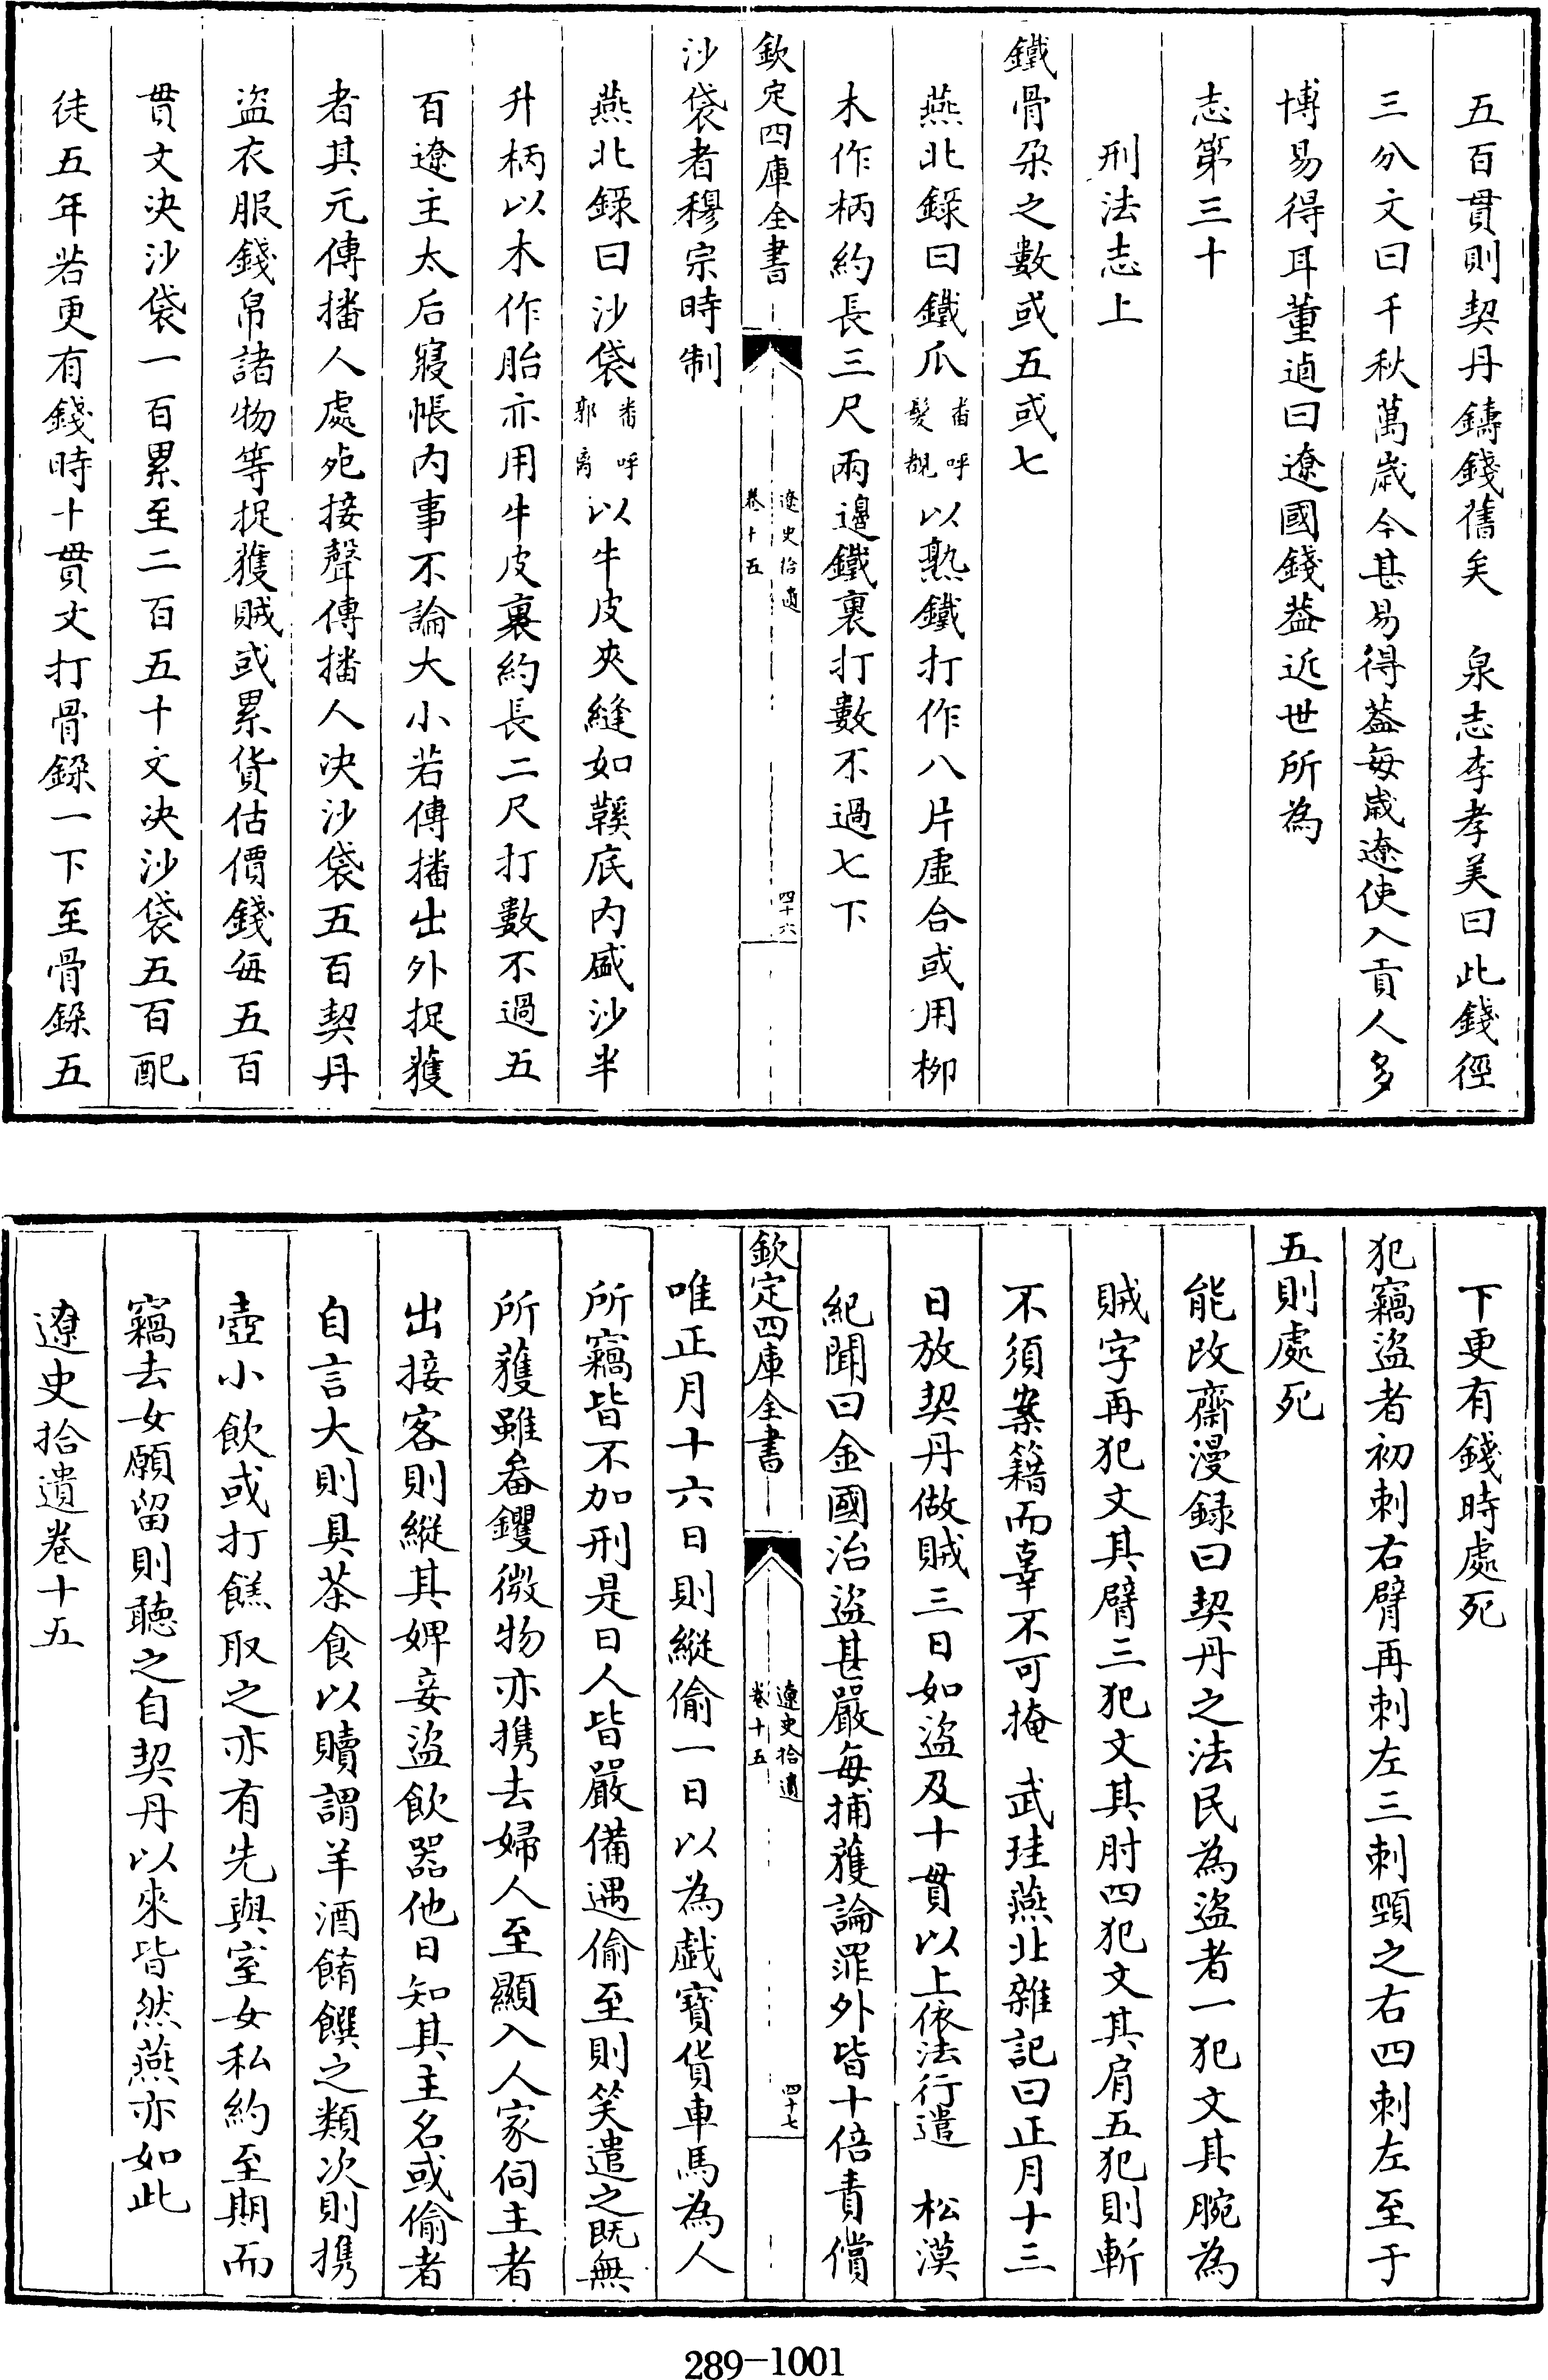 五百貫則契丹鑄錢舊矣　泉志李孝美曰此錢徑
三分文曰千秋萬歲今甚易得葢每歲遼使入貢人多
博易得耳董逌曰遼國錢葢近世所為
志第三十
刑法志上
鐵骨朶之數或五或七
燕北錄曰鐵爪番呼髮覩以熟鐵打作八片虛合或用柳
木作柄約長三尺兩邊鐵裹打數不過七下
欽定四庫全書
遼史拾遺
卷十五
四十六
沙袋者穆宗時制
燕北錄曰沙袋番呼郭离以牛皮夾縫如鞵底內盛沙半
升柄以木作胎亦用牛皮裹約長二尺打數不過五
百遼主太后寢帳內事不論大小若傳播出外捉獲
者其元傳播人處死接聲傳播人決沙袋五百契丹
盜衣服錢帛諸物等捉獲賊或累貨估價錢每五百
貫文決沙袋一百累至二百五十文決沙袋五百配
徒五年若更有錢時十貫文打骨鍒一下至骨鍒五
下更有錢時處死
犯竊盜者初刺右臂再刺左三刺頸之右四刺左至于
五則處死
能改齋漫録曰契丹之法民為盜者一犯文其腕為
賊字再犯文其臂三犯文其肘四犯文其肩五犯則斬
不須案籍而辜不可掩　武珪燕北雜記曰正月十三
日放契丹做賊三日如盜及十貫以上依法行遣　松漠
紀聞曰金國治盜甚嚴每捕獲論罪外皆十倍責償
欽定四庫全書
遼史拾遺
卷十五
四十七
唯正月十六日則縱偷一日以為戲寶貨車馬為人
所竊皆不加刑是日人皆嚴備遇偷至則笑遣之既無
所獲雖畚钁微物亦携去婦人至顯入人家伺主者
出接客則縱其婢妾盜飲器他日知其主名或偷者
自言大則具茶食以贖謂羊酒餚饌之類次則携
壺小飲或打餻取之亦有先與室女私約至期而
竊去女願留則聽之自契丹以來皆然燕亦如此
遼史拾遺卷十五
289-1001